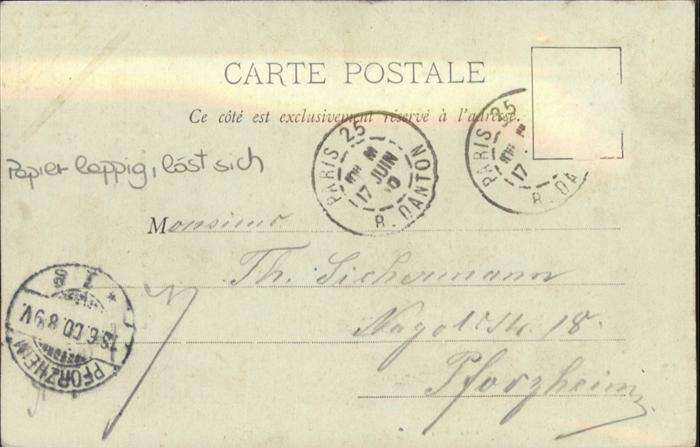 CARTE POSTALE
Ce côté est exclusivement réservé à l'adresse.
Papier lappig, löst sich
PARIS 25
17 JUIN
R. DANTON
PARIS 25
17
R. DA
Monsieur
Th.
18.
Pforzheim
PFORZHEIM
18.6.00.8-9V.